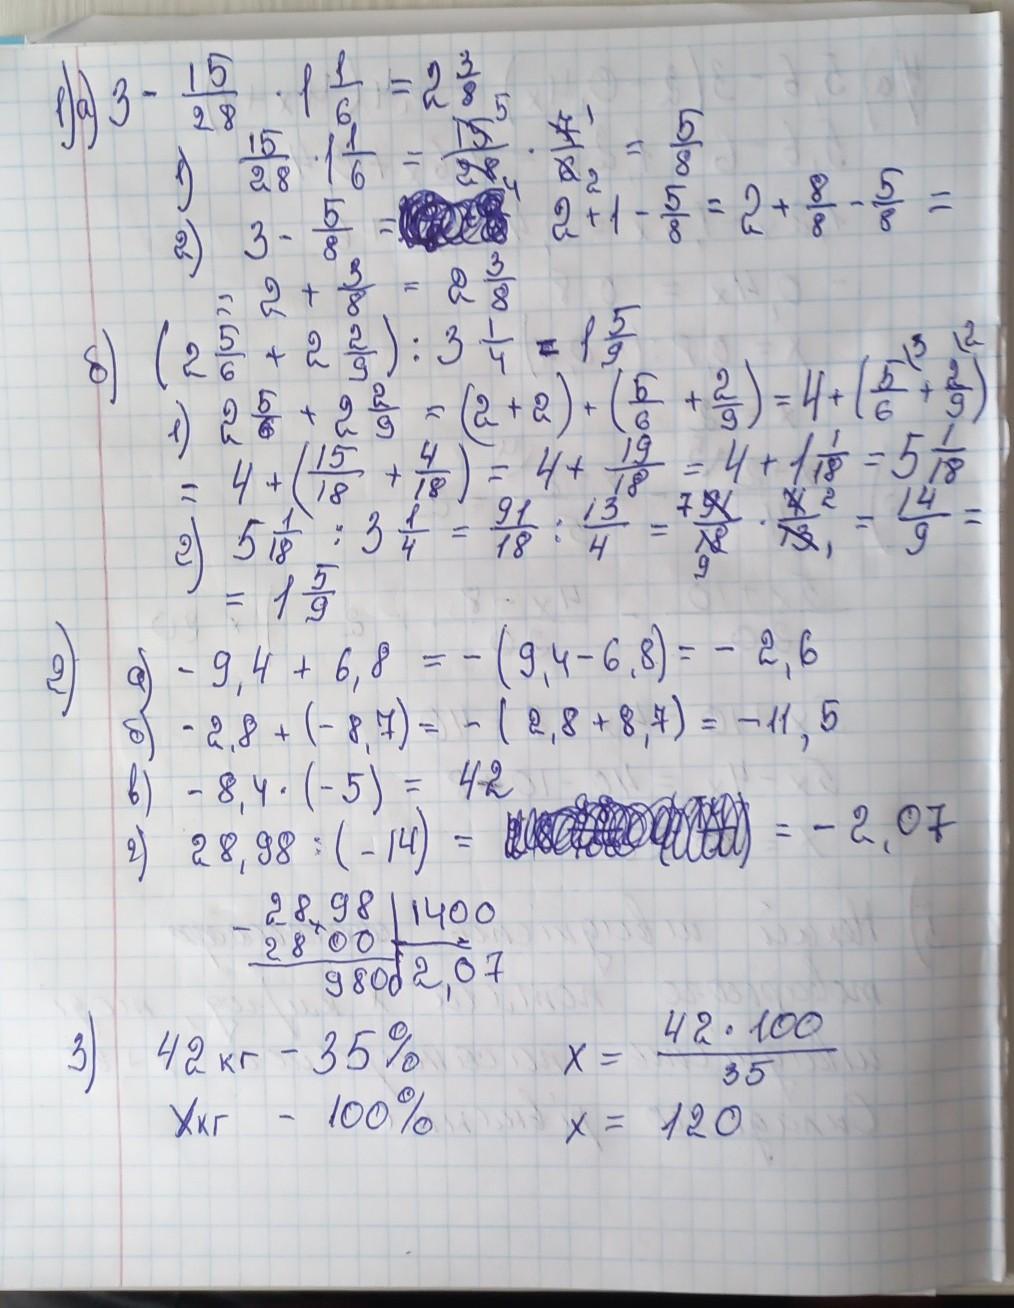 1) а) 3 - 15/28 · 1 1/6 = 2 3/8
1) 15/28 · 1 1/6 = 15/28 · 7/6 = 5/8
2) 3 - 5/8 = 2 + 1 - 5/8 = 2 + 8/8 - 5/8 =
= 2 + 3/8 = 2 3/8
б) (2 5/6 + 2 2/9) : 3 1/4 = 1 5/9
1) 2 5/6 + 2 2/9 = (2 + 2) + (5/6 + 2/9) = 4 + (5/6 + 2/9)
= 4 + (15/18 + 4/18) = 4 + 19/18 = 4 + 1 1/18 = 5 1/18
2) 5 1/18 : 3 1/4 = 91/18 : 13/4 = 91/18 · 4/13 = 14/9 =
= 1 5/9
2) а) - 9,4 + 6,8 = - (9,4 - 6,8) = - 2,6
б) - 2,8 + (- 8,7) = - (2,8 + 8,7) = - 11,5
в) - 8,4 · (-5) = 42
г) 28,98 : (-14) = = - 2,07
- 28,98 | 1400
2800 | 2,07
9800
3) 42 кг - 35% x = 42 · 100/35
x кг - 100% x = 120